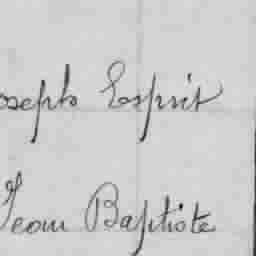 oseph Esprit
Jean Baptiste